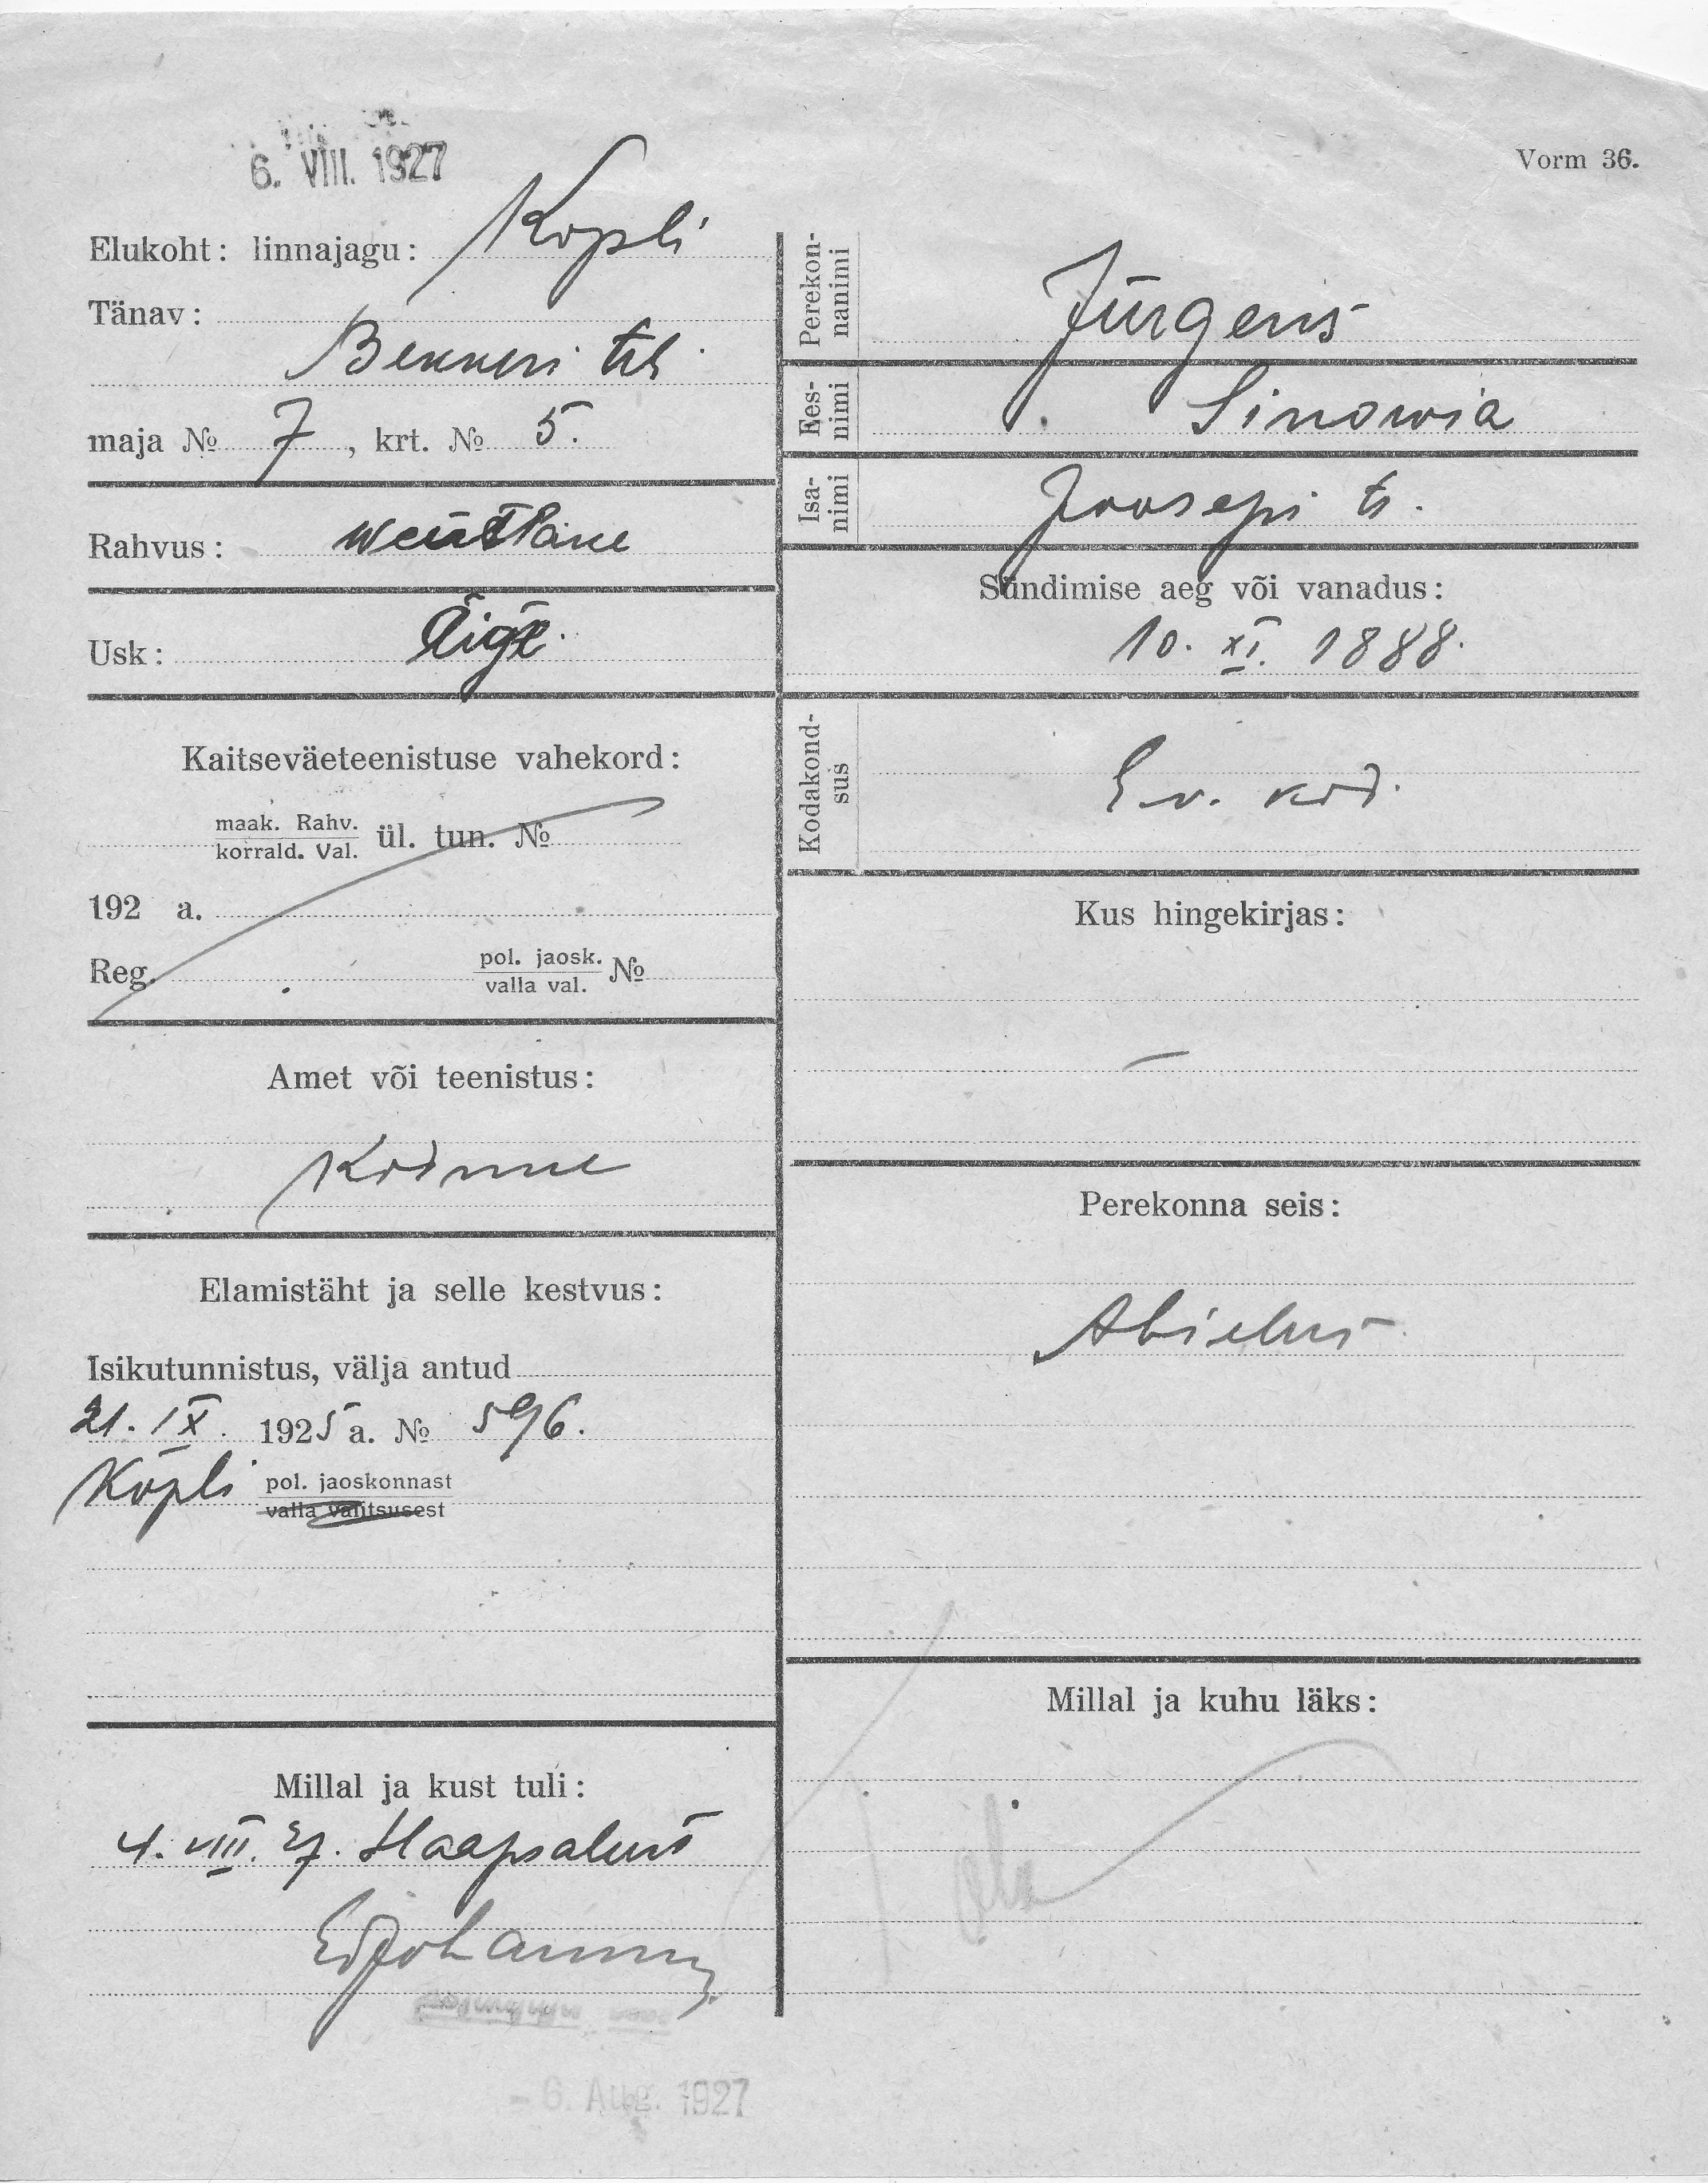 6. VIII. 1927
Vorm 36.
Elukoht: linnajagu: Kopli
Tänav:
Bekkeri teh.
maja № 7, krt. № 5.
Rahvus:
Usk: Õige
Kaitseväeteenistuse vahekord:
maak. Rahv.
korrald. Val. ül. tun. №
192 a.
Reg. pol. jaosk.
valla val. №
Amet või teenistus:
Elamistäht ja selle kestvus:
Isikutunnistus, välja antud
21. IX. 1925 a. № 596.
Kopli pol. jaoskonnast
valla valitsusest
Millal ja kust tuli:
4. VIII. 27. Haapsalust
- 6. Aug. 1927
Perekon-
nanimi Jürgens
Ees-
nimi Sinowia
Isa-
nimi Joosepi t.
Sündimise aeg või vanadus:
10. XI. 1888.
Kodakond-
sus E. v. kod.
Kus hingekirjas:
—
Perekonna seis:
Abielus
Millal ja kuhu läks: